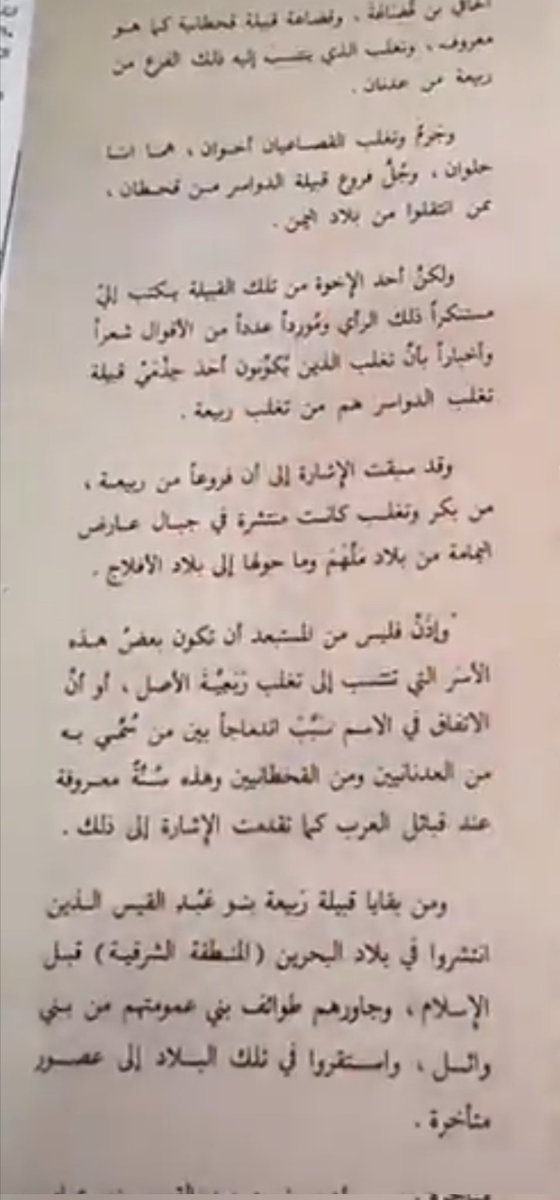 الحافي بن قُضَاعَةَ ، وقضاعة قبيلة قحطانية كما هو
معروف ، وتغلب الذي ينتسب إليه ذلك الفرع من
ربيعة من عدنان .
وجَرمٌ وتغلب القضاعيان أخوان ، هما ابنا
حلوان ، وجُلُّ فروع قبيلة الدواسر من قحطان ،
ممن انتقلوا من بلاد اليمن .
ولكنْ أحد الإخوة من تلك القبيلة يكتب إليّ
مستنكراً ذلك الرأي ومُورِداً عدداً من الأقوال شعراً
وأخباراً بأنَّ تغلب الذين يُكوِّنون أحَدَ جِذْمَيْ قبيلة
تغلب الدواسر هم من تغلب ربيعة .
وقد سبقت الإشارة إلى أن فروعاً من ربيعة ،
من بكر وتغلب كانت منتشرة في جبال عارض
اليمامة من بلاد مَلْهَمَ وما حولها إلى بلاد الأفلاج .
وإذَنْ فليس من المستبعد أن تكون بعضُ هذه
الأسَر التي تنتسب إلى تغلب رَبَعِيَّةَ الأصل ، أو أنَّ
الاتفاق في الاسم سَبَّبَ اندماجاً بين من سُمِّي به
من العدنانيين ومن القحطانيين وهذه سُنَّةٌ معروفة
عند قبائل العرب كما تقدمت الإشارة إلى ذلك .
ومن بقايا قبيلة رَبيعة بنو عَبْدِ القيس الذين
انتشروا في بلاد البحرين (المنطقة الشرقية) قبل
الإسلام ، وجاورهم طوائف بني عمومتهم من بني
وائل ، واستقروا في تلك البلاد إلى عصور
متأخرة .